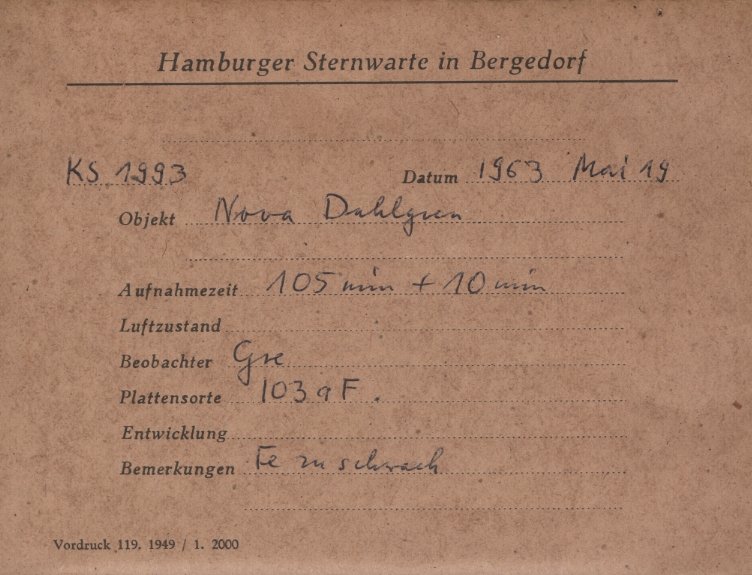 Hamburger Sternwarte in Bergedorf
KS 1993 Datum 1963 Mai 19
Objekt Nova Dahlgren
Aufnahmezeit 105 min + 10 min
Luftzustand
Beobachter Gre
Plattensorte 103 a F.
Entwicklung
Bemerkungen Fe zu schwach
Vordruck 119. 1949 / 1. 2000